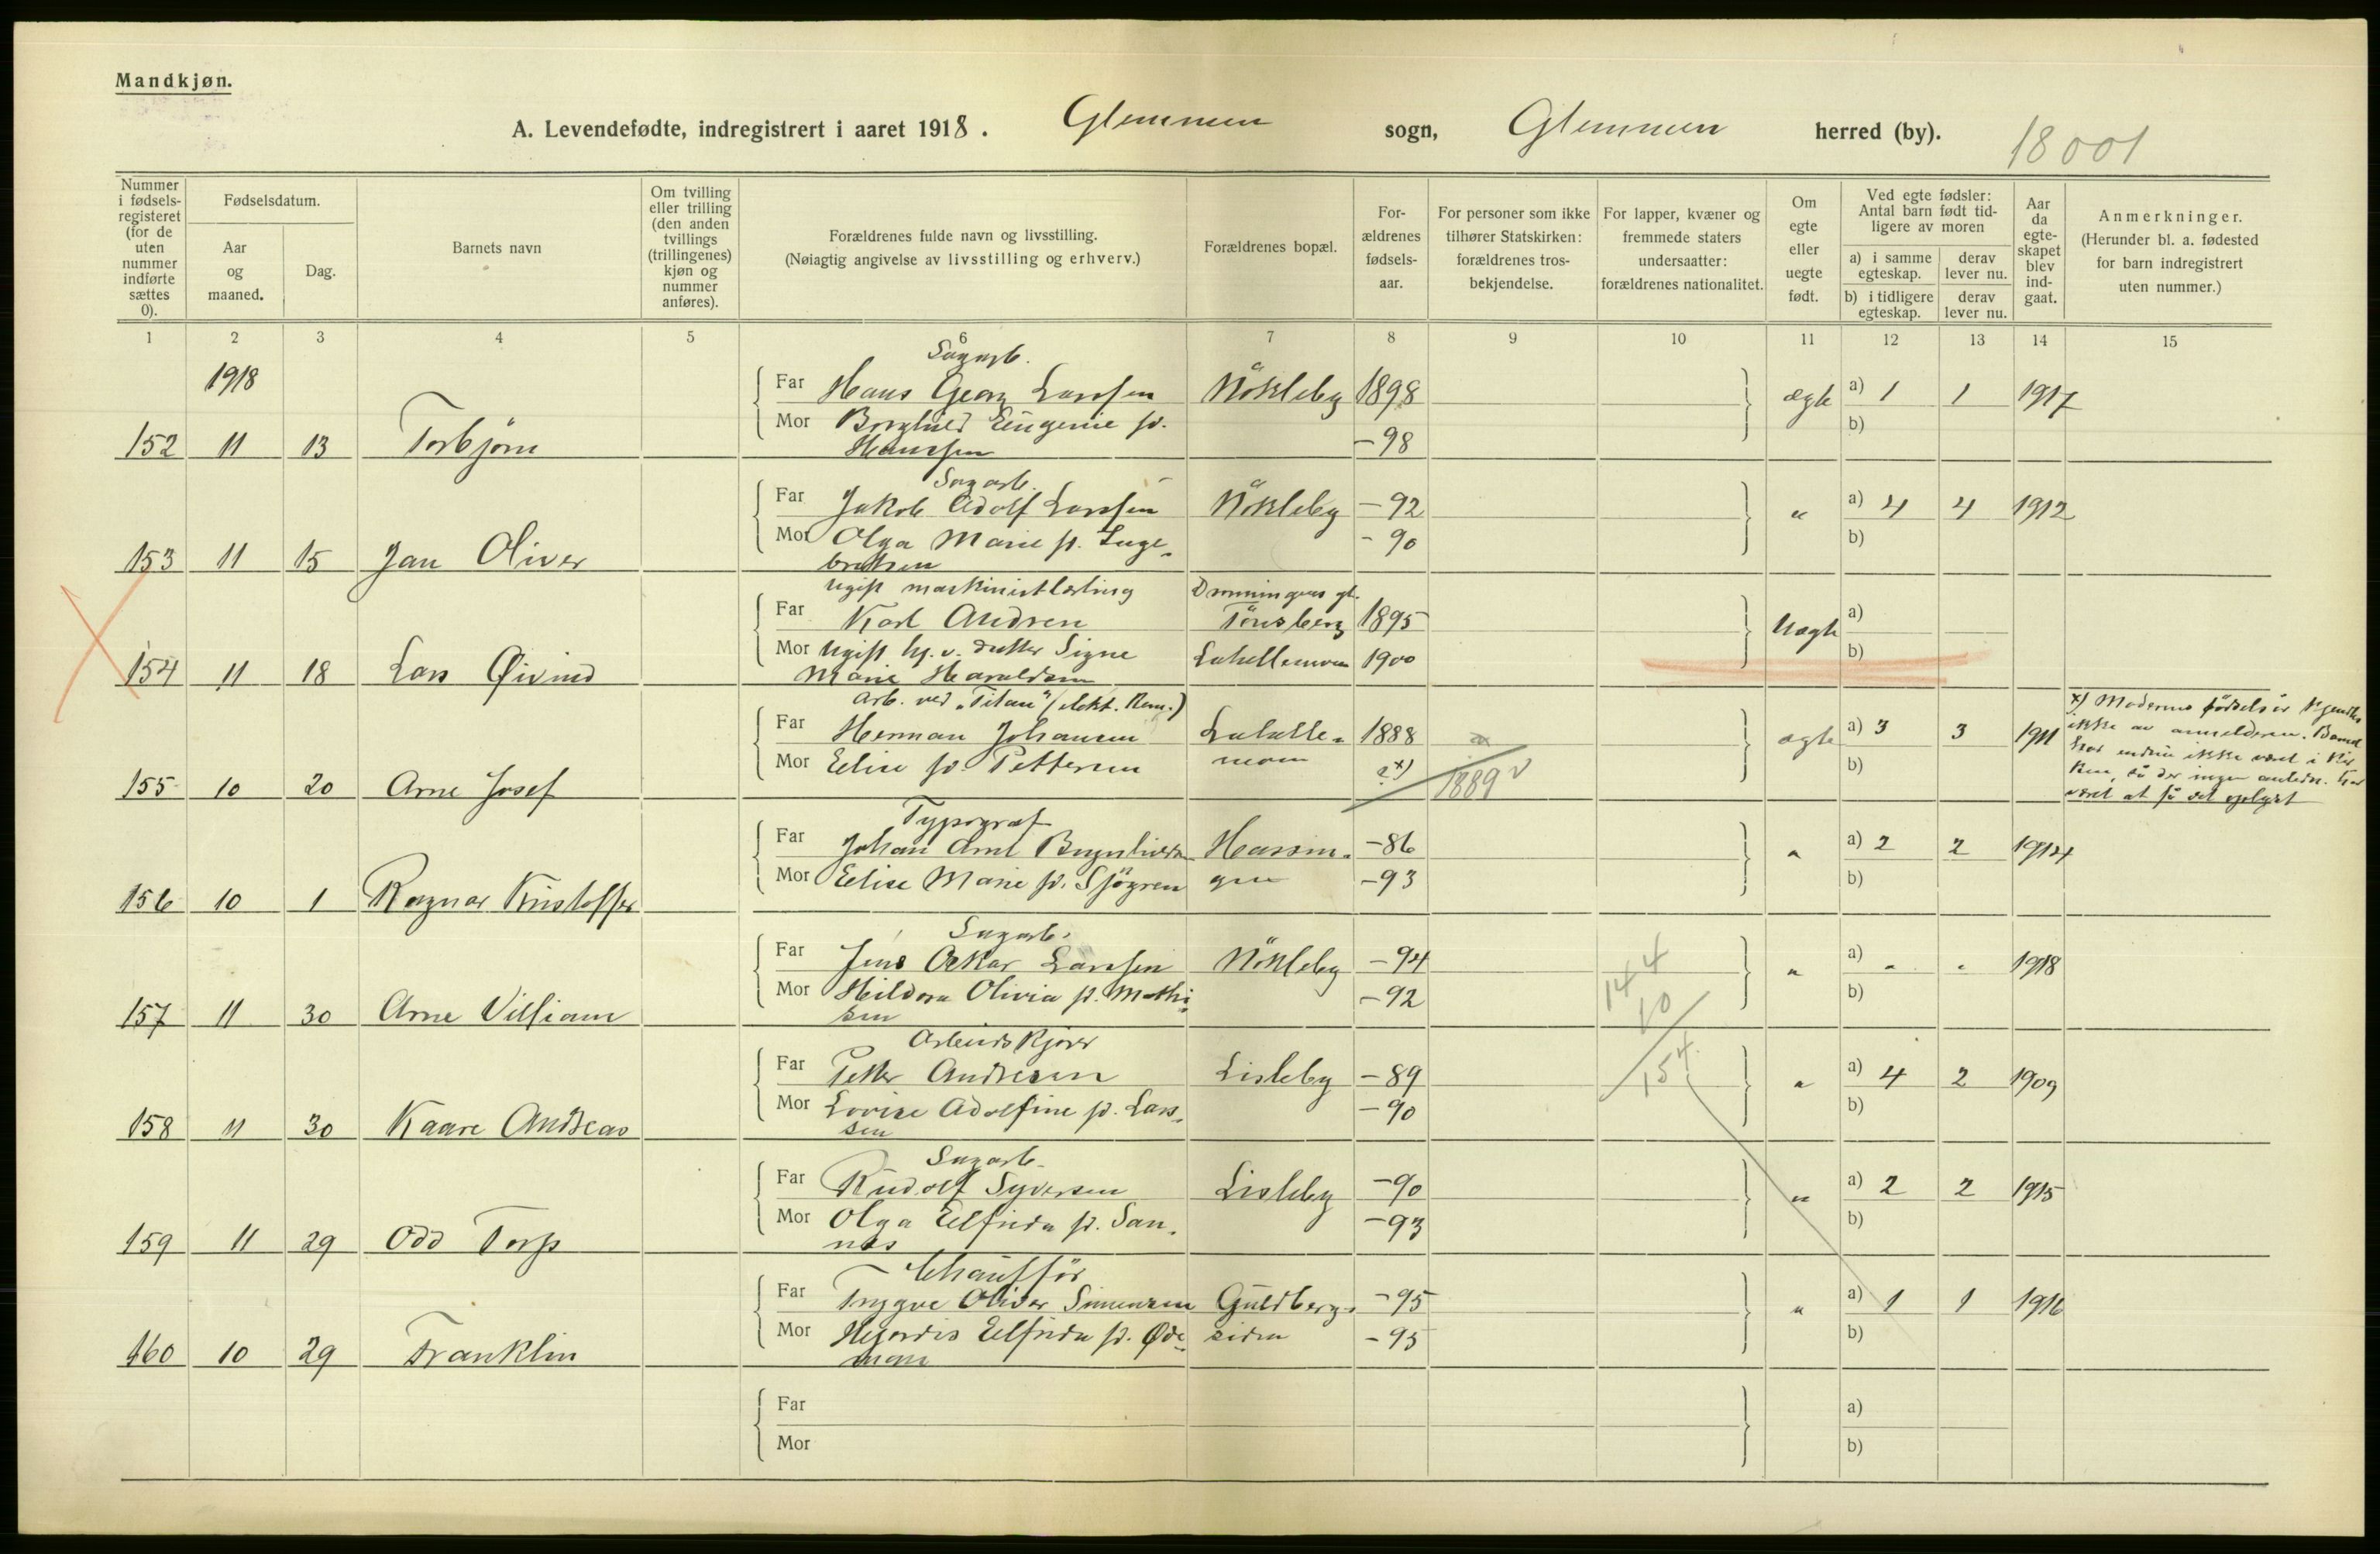 Mandkjøn.
A. Levendefødte, indregistrert i aaret 1918. Glemmen sogn, Glemmen herred (by). 18001
Nummer i fødsels-registeret (for de uten nummer indførte sættes 0).
Fødselsdatum.
Aar og maaned.
Dag.
Barnets navn
Om tvilling eller trilling (den anden tvillings (trillingenes) kjøn og nummer anføres).
Forældrenes fulde navn og livsstilling.
(Nøiagtig angivelse av livsstilling og erhverv.)
Forældrenes bopæl.
For-ældrenes fødsels-aar.
For personer som ikke tilhører Statskirken: forældrenes tros-bekjendelse.
For lapper, kvæner og fremmede staters undersaatter: forældrenes nationalitet.
Om egte eller uegte født.
Ved egte fødsler: Antal barn født tid-ligere av moren
a) i samme egteskap.
derav lever nu.
b) i tidligere egteskap.
derav lever nu.
Aar da egte-skapet blev ind-gaat.
Anmerkninger.
(Herunder bl. a. fødested for barn indregistrert uten nummer.)
1 2 3 4 5 6 7 8 9 10 11 12 13 14 15
1918
Sagarb.
Far Hans Georg Larssen Nökleby 1898 ægte a) 1 1 1917
Mor Borghild Eugenie f. - 98 b)
152 11 13 Torbjørn Hanssen
Sagarb.
Far Jakob Adolf Larssen Nökleby - 92 " a) 4 4 1912
Mor Olga Marie f. Inge- - 90 b)
153 11 15 Jan Oliver bretsen
Ugift maskinistlærling Dronningens gt.
Far Karl Andresen Tönsberg 1895 Uægte a)
Mor Ugift hj. v. datter Signe Lahellemoen 1900 b)
154 11 18 Lars Øivind Marie Haraldsen
Arb. ved "Titan" (elekt. Kem.)
Far Herman Johansen Lahelle- 1888 ægte a) 3 3 1911
Mor Elise f. Pettersen moen ? x) 1889 b)
155 10 20 Arne Josef
x) Moderens fødselsår kjendtes
ikke av anmelderen. Barnet
har endnu ikke været i Kir
ken, så der ingen anledn. har
været at få det oplyst
Typograf
Far Johan Arnt - 86 " a) 2 2 1914
Mor Elise Marie f. Sjögren - 93 b)
156 10 1 Ragnar Kristoffer
Sagarb.
Far Jens Oskar Larssen Nökleby - 94 " a) " " 1918
Mor Hildora Olivia f. Mathi- - 92 b)
157 11 30 Arne Villiam sen
144
10
154
Arbeidskjører
Far Petter Andresen Lisleby - 89 " a) 4 2 1909
Mor Lovise Adolfine f. Lars- - 90 b)
158 11 30 Kaare Andreas sen
Sagarb.
Far Rudolf Syversen Lisleby - 90 " a) 2 2 1915
Mor Olga Elfrida f. San- - 93 b)
159 11 29 Odd Torp nes
Chauffør
Far Trygve Oliver Simensen Guldbergs- - 95 " a) 1 1 1916
Mor Hjørdis Elfrida f. Øde- siden - 95 b)
160 10 29 Franklin man
Far a)
Mor b)